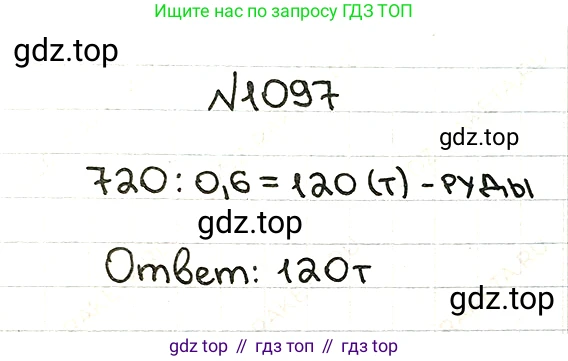 Ищите нас по запросу ГДЗ ТОП
gdz.top
№1097
gdz.top
720 : 0,6 = 120 (т) - руды
gdz.top
Ответ: 120т
gdz.top
gdz.top // гдз топ // gdz.top